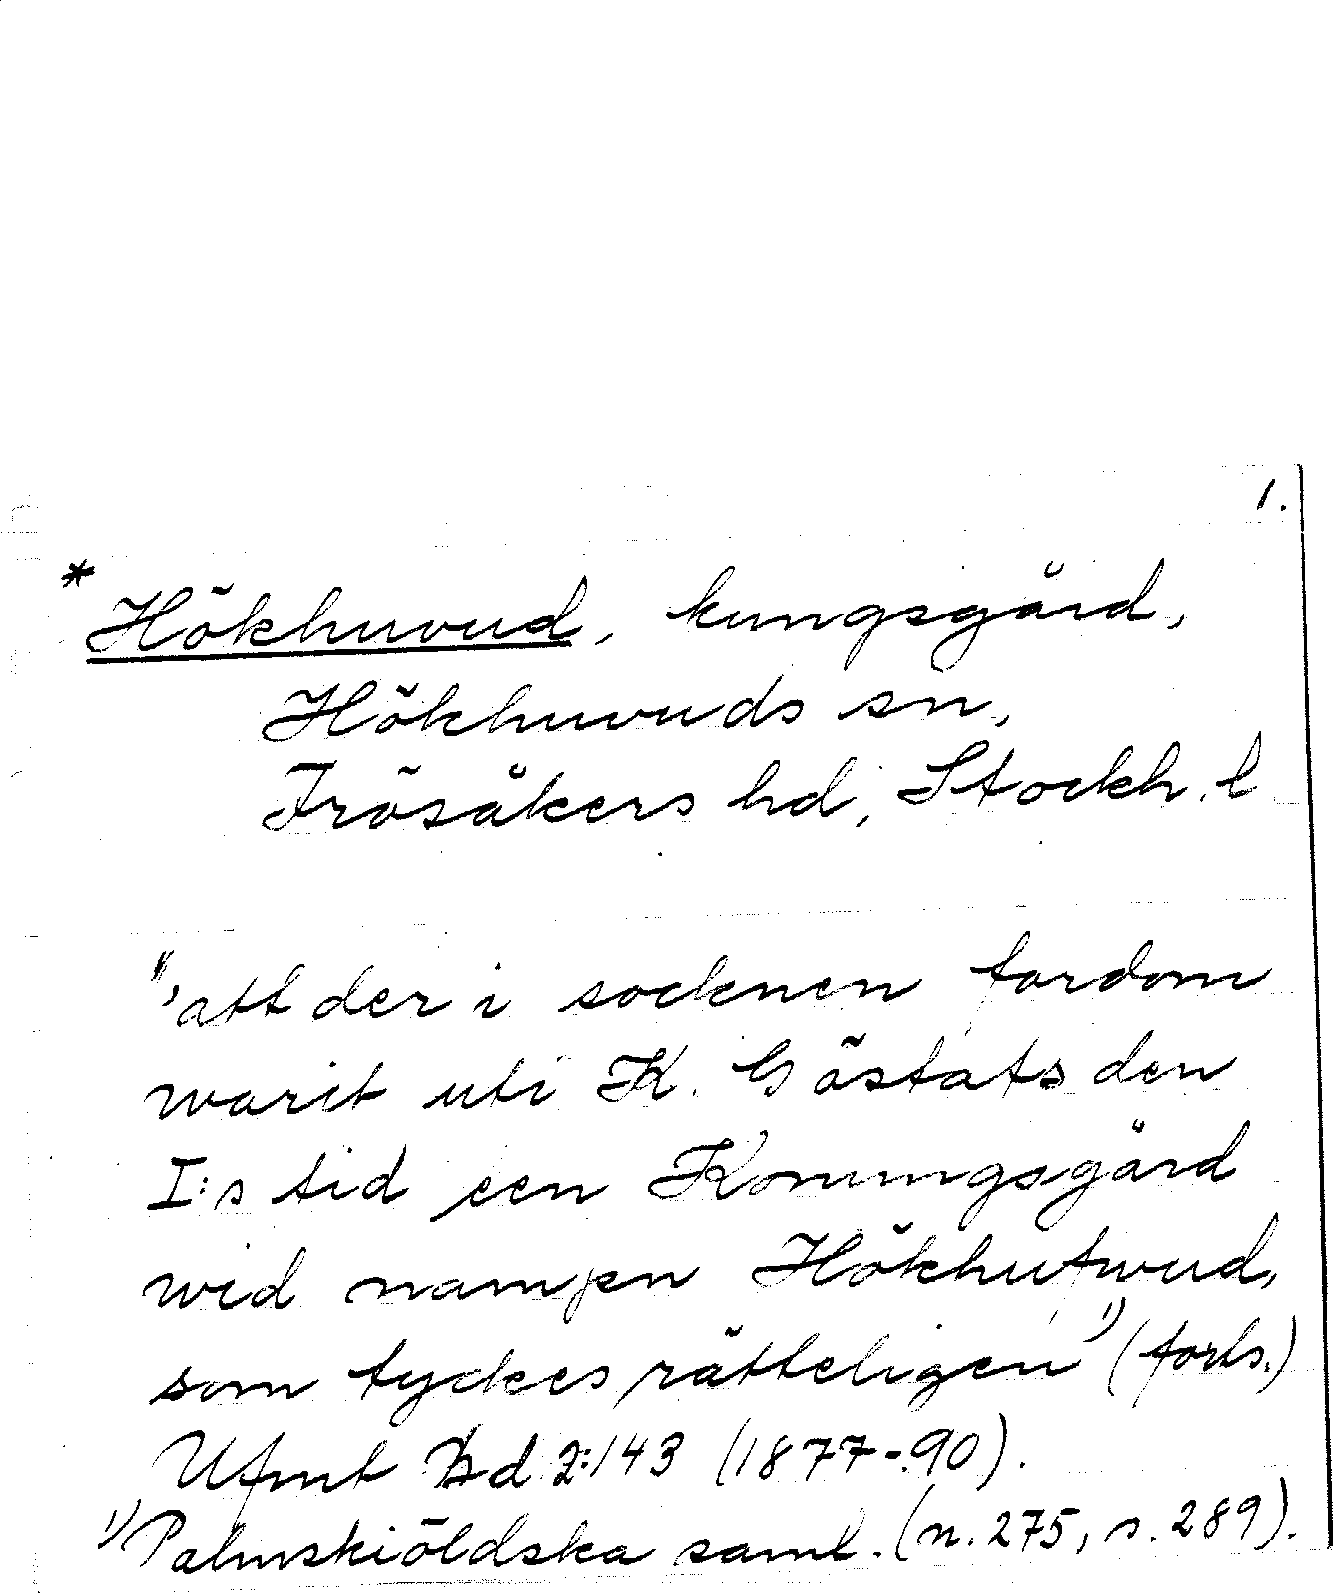 1.
* Hökhuvud, kungsgård,
Hökhuvuds sn,
Frösåkers hd, Stockh. l
"att der i socknen fordom
warit uti K. Göstafs den
I:s tid een Konungsgård
wid nampn Hökhufwud,
som tyckes rätteligen" 1) (forts.)
Ufmt Bd 2:143 (1877-90).
1) Palmskiöldska saml. (n. 275, s. 289).